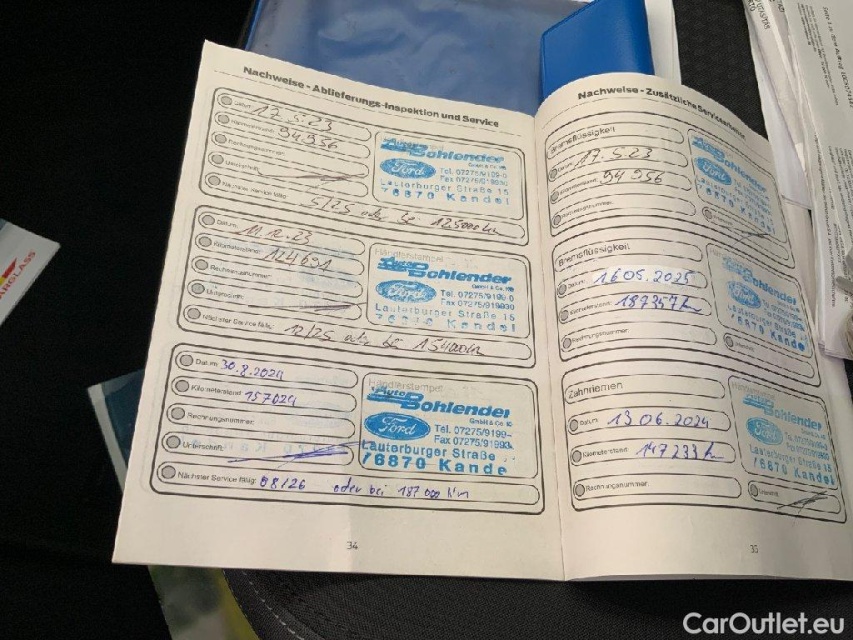 Nachweise - Ablieferungs-Inspektion und Service
Datum: 17.5.23
Kilometerstand: 94956
Rechnungsnummer:
Unterschrift:
Nächster Service fällig: 5/25 oder bei 125000 km
Auto Bohlender
GmbH & Co. KG
Ford
Tel. 07275/9199-0
Lauterburger Straße 15
76870 Kandel
Datum: 11.12.23
Kilometerstand: 124691
Rechnungsnummer:
Unterschrift:
Nächster Service fällig: 12/25 oder bei 154000 km
Händlerstempel
Auto Bohlender
GmbH & Co. KG
Ford
Tel. 07275/9199-0
Fax 07275/919930
Lauterburger Straße 15
76870 Kandel
Datum: 30.8.2024
Kilometerstand: 157024
Rechnungsnummer:
Unterschrift:
Nächster Service fällig: 08/26 oder bei 187 000 km
Händlerstempel
Auto Bohlender
GmbH & Co. KG
Ford
Tel. 07275/9199-
Fax 07275/91993
Lauterburger Straße
76870 Kande
34
Nachweise - Zusätzliche Servicearbeiten
Bremsflüssigkeit
Datum: 17.5.23
Kilometerstand: 94956
Rechnungsnummer:
Bohlender
Ford
Lauterburger Straße
76870 Kandel
Bremsflüssigkeit
Datum: 16.05.2025
Kilometerstand: 187357 km
Rechnungsnummer:
Unterschrift
Bohlender
Ford
Lauterburger Straße
76870 Kandel
Zahnriemen
Datum: 13.06.2024
Kilometerstand: 147233 km
Rechnungsnummer:
Unterschrift
Bohlender
Ford
Lauterburger Straße
76870 Kandel
35
CarOutlet.eu